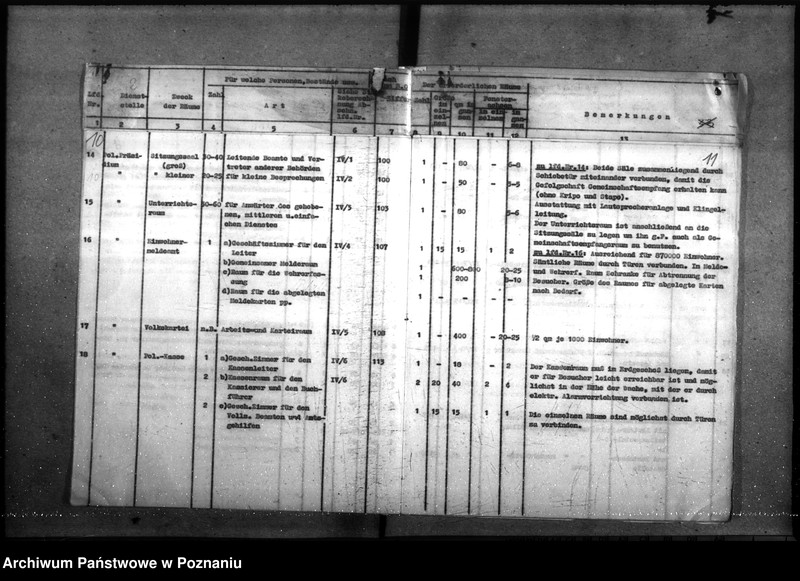 Für welche Personen, Bestände usw.
Der erforderlichen Räume
Lfd. Nr.
Dienst-
stelle
Zweck
der Räume
Zahl
A r t
Zahl
Fenster-
B e m e r k u n g e n
1 2 3 4 5 6 7 8 9 10 11 12 13
10
11
14 Pol.Präsi-
dium
Sitzungssaal 30-40 Leitende Beamte und Ver- IV/1 100 1 - 80 - 6-8
(groß) treter anderer Behörden
" " kleiner 20-25 für kleine Besprechungen IV/2 100 1 - 50 - 3-5
zu lfd.Nr.14: Beide Säle zusammenliegend durch
Schiebetür miteinander verbunden, damit die
Gefolgschaft Gemeinschaftsempfang erhalten kann
(ohne Kripo und Stapo).
15 " Unterrichts- 50-60 für Anwärter des gehobe- IV/3 103 1 - 80 - 5-6
raum nen, mittleren u.einfa-
chen Dienstes
Ausstattung mit Lautsprecheranlage und Klingel-
leitung.
Der Unterrichtsraum ist anschließend an die
Sitzungssäle zu legen um ihn g.F. auch als Ge-
meinschaftsempfangsraum zu benutzen.
16 " Einwohner- 1 a)Geschäftszimmer für den IV/4 107 1 15 15 1 2
meldeamt Leiter
b)Gemeinsamer Melderaum 1 - 600-800 - 20-25
c)Raum für die Wehrerfas- 1 - 200 - 8-10
sung
d)Raum für die abgelegten 1 - - - -
Meldekarten pp.
zu lfd.Nr.16: Ausreichend für 870000 Einwohner.
Sämtliche Räume durch Türen verbunden. In Melde-
und Wehrerf. Raum Schranke für Abtrennung der
Besucher. Größe des Raumes für abgelegte Karten
nach Bedarf.
17 " Volkskartei n.B. Arbeits-und Karteiraum IV/5 108 1 - 400 - 20-25 ½ qm je 1000 Einwohner.
18 " Pol.-Kasse 1 a)Gesch.Zimmer für den IV/6 113 1 - 18 - 2
Kassenleiter
2 b)Kassenraum für den IV/6 2 20 40 2 4
Kassierer und den Buch-
führer
2 c)Gesch.Zimmer für den 1 15 15 1 1
Vollz. Beamten und Amts-
gehilfen
Der Kassenraum muß im Erdgeschoß liegen, damit
er für Besucher leicht erreichbar ist und mög-
lichst in der Nähe der Wache, mit der er durch
elektr. Alarmvorrichtung verbunden ist.
Die einzelnen Räume sind möglichst durch Türen
zu verbinden.
Archiwum Państwowe w Poznaniu